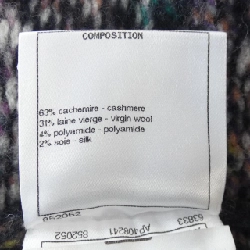 COMPOSITION
63% cachemire - cashmere
31% laine vierge - virgin wool
4% polyamide - polyamide
2% soie - silk